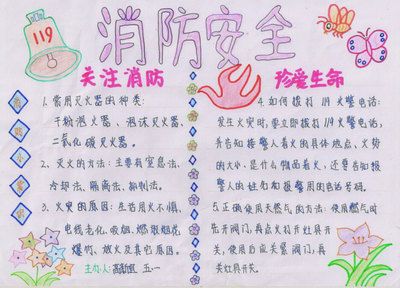 119
消防安全
关注消防
珍爱生命
消防小常识
1. 常用灭火器的种类:
干粉灭火器、泡沫灭火器、
二氧化碳灭火器。
2. 灭火的方法: 主要有窒息法、
冷却法、隔离法、抑制法。
3. 火灾的原因: 生活用火不慎、
电线老化、吸烟、燃放烟花
爆竹、放火及其它原因。
主办人: 五一
4. 如何拨打119火警电话:
发生火灾时,要立即拨打119火警电话,
并告知接警人着火的具体地点,火势
的大小,是什么物品着火,还要告知接
警人的姓名和报警用的电话号码。
5. 正确使用天然气的方法: 使用燃气时
先开阀门,再点火打开灶具开
关,使用后应关紧阀门,再
关灶具开关。